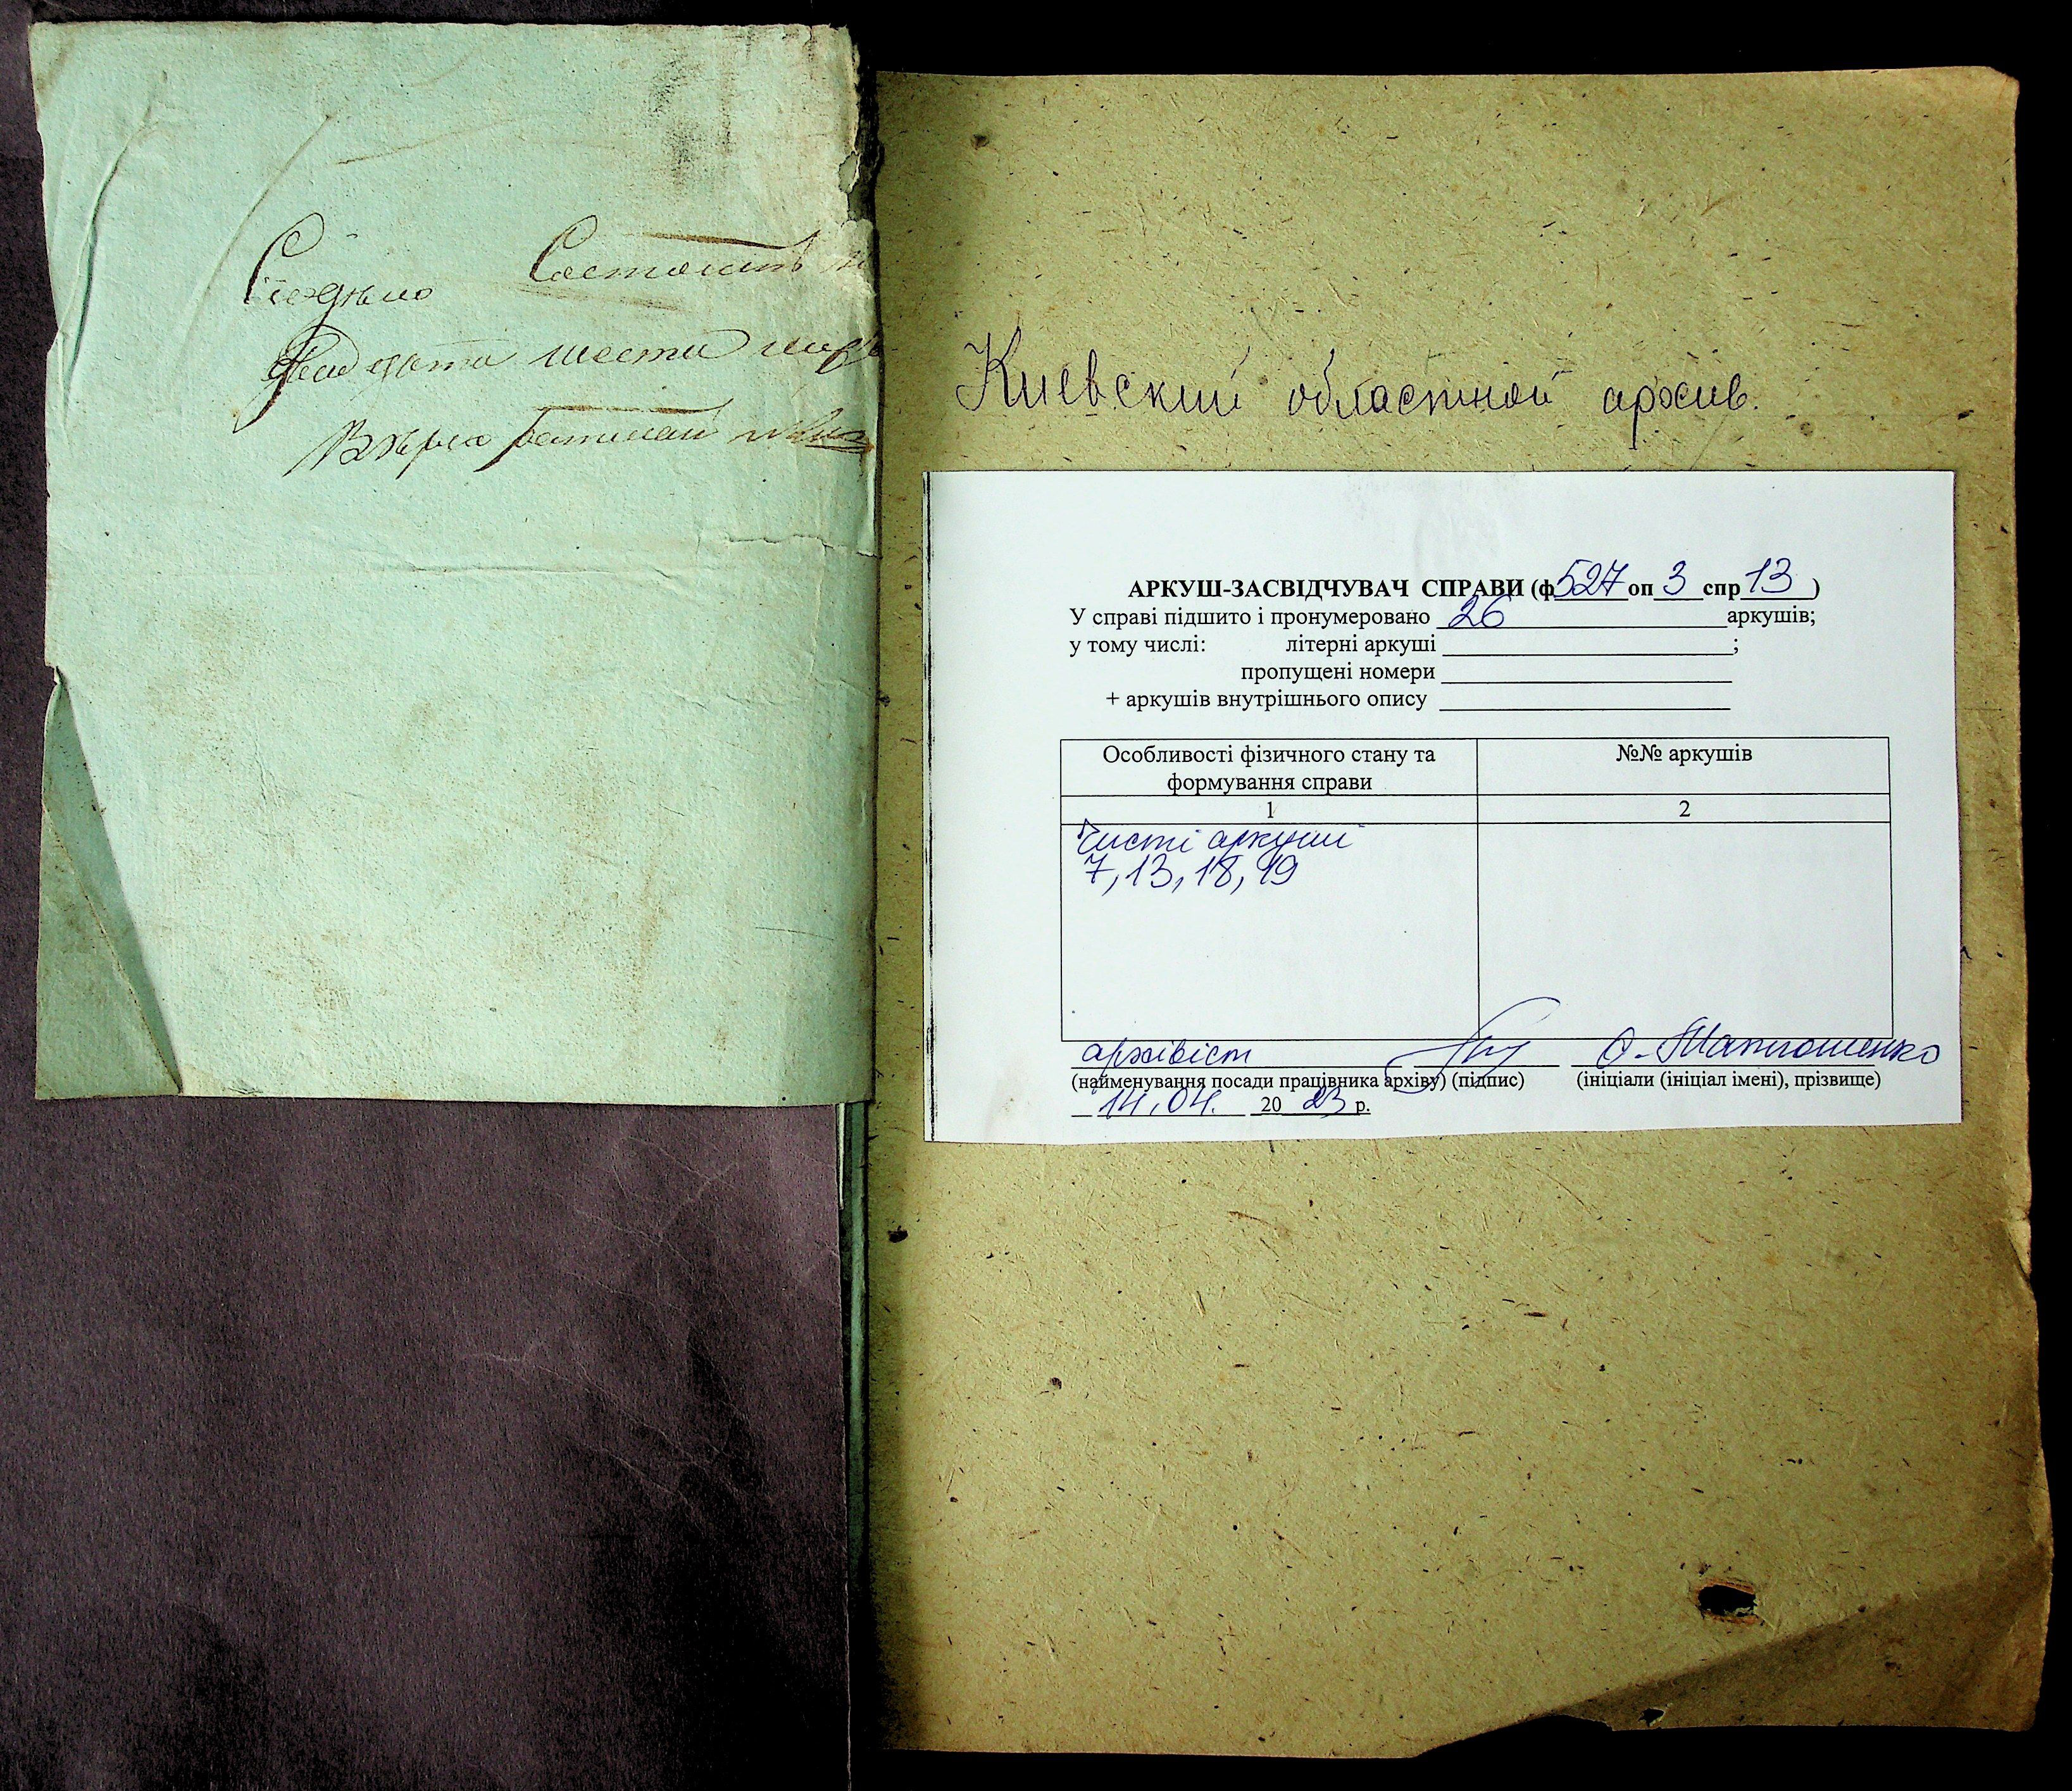 Сіе дѣло Состоитъ
двадцати шести
Вѣрно
Киевский областной архив.
АРКУШ-ЗАСВІДЧУВАЧ СПРАВИ (ф 527 оп 3 спр 13 )
У справі підшито і пронумеровано 26 аркушів;
у тому числі: літерні аркуші ;
пропущені номери
+ аркушів внутрішнього опису
Особливості фізичного стану та формування справи
№№ аркушів
1 2
Чисті аркуші
7, 13, 18, 19
архівіст
(найменування посади працівника архіву) (підпис) (ініціали (ініціал імені), прізвище)
14.04. 2023 р.